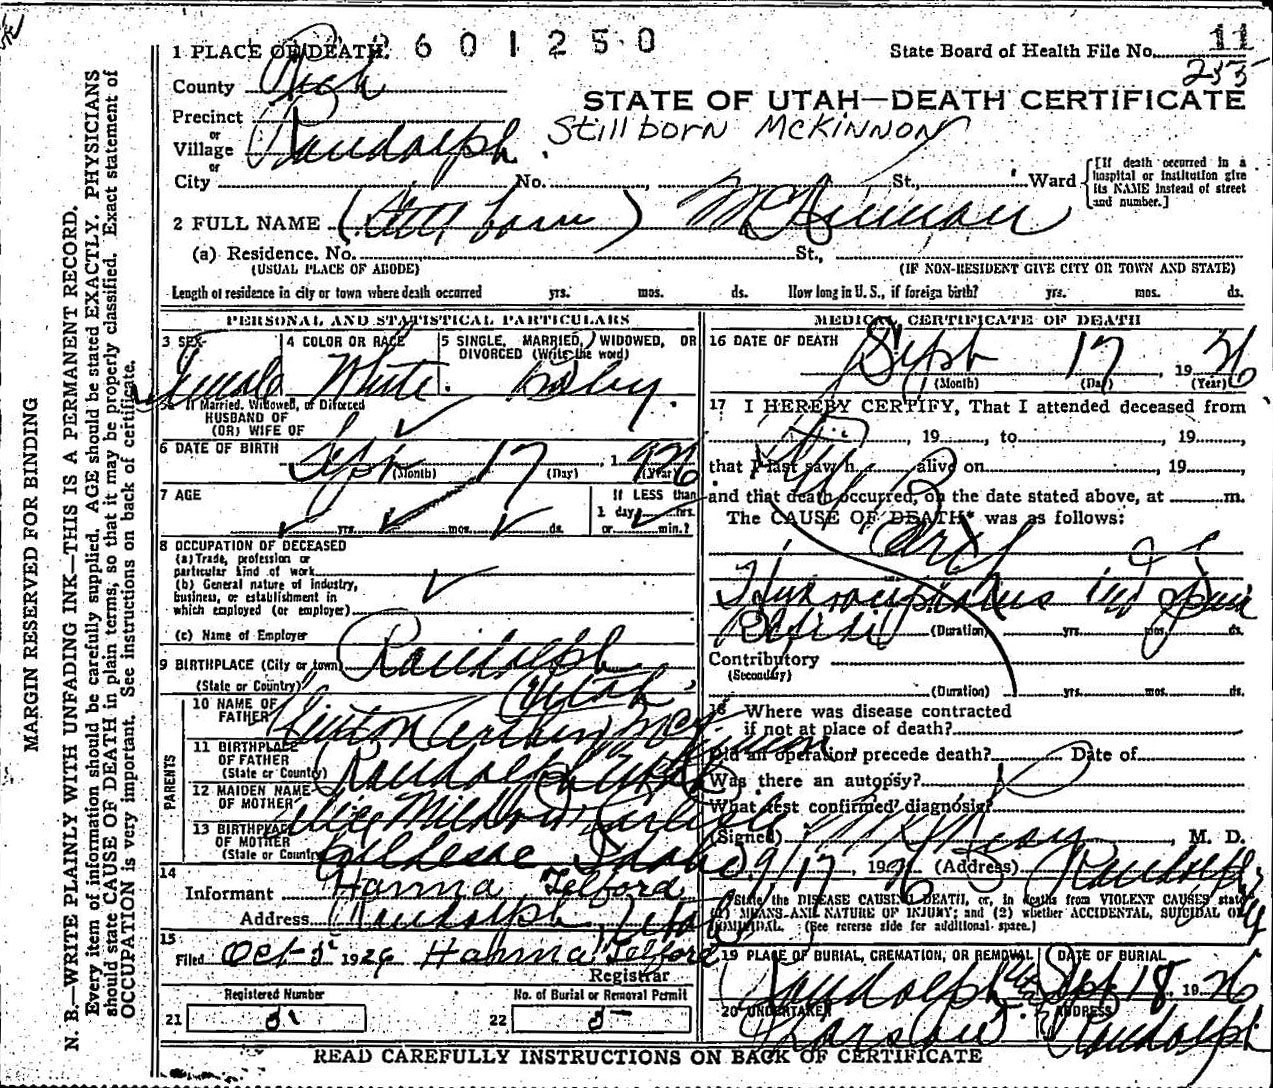 2601250
11
1 PLACE OF DEATH. State Board of Health File No.
235
County Rich
STATE OF UTAH—DEATH CERTIFICATE
Precinct
or
Village Randolph. Stillborn McKinnon
or
City No. , St., Ward {[If death occurred in a hospital or institution give its NAME instead of street and number.]
2 FULL NAME (Still born) McKinnon
(a) Residence. No. St.,
(USUAL PLACE OF ABODE) (IF NON-RESIDENT GIVE CITY OR TOWN AND STATE)
Length of residence in city or town where death occurred yrs. mos. ds. How long in U. S., if foreign birth? yrs. mos. ds.
MARGIN RESERVED FOR BINDING
N. B.—WRITE PLAINLY WITH UNFADING INK—THIS IS A PERMANENT RECORD.
Every item of information should be carefully supplied. AGE should be stated EXACTLY. PHYSICIANS
should state CAUSE OF DEATH in plain terms, so that it may be properly classified. Exact statement of
OCCUPATION is very important. See instructions on back of certificate.
PERSONAL AND STATISTICAL PARTICULARS
3 SEX 4 COLOR OR RACE 5 SINGLE, MARRIED, WIDOWED, OR
DIVORCED (Write the word)
Female White. Baby.
5a If Married, Widowed, or Divorced
HUSBAND OF
(OR) WIFE OF
6 DATE OF BIRTH Sept 17 1926
(Month) (Day) (Year)
7 AGE If LESS than
1 day hrs.
yrs. mos. ds. or min.?
8 OCCUPATION OF DECEASED
(a) Trade, profession or
particular kind of work
(b) General nature of industry,
business, or establishment in
which employed (or employer)
(c) Name of Employer
9 BIRTHPLACE (City or town) Randolph
(State or Country) Utah
PARENTS
10 NAME OF
FATHER Arthur McKinnon
11 BIRTHPLACE
OF FATHER
(State or Country) Randolph Utah
12 MAIDEN NAME
OF MOTHER Alice Mildred Carlisle
13 BIRTHPLACE
OF MOTHER
(State or Country) Idaho
14
Informant Hanna Telford
Address Randolph, Utah
15
Filed Oct-5 1926 Hanna Telford
Registrar
Registered Number No. of Burial or Removal Permit
21 22 5
MEDICAL CERTIFICATE OF DEATH
16 DATE OF DEATH
Sept 17, 1926
(Month) (Day) (Year)
17 I HEREBY CERTIFY, That I attended deceased from
, 19 , to , 19 ,
that I last saw h alive on , 19 ,
and that death occurred, on the date stated above, at m.
The CAUSE OF DEATH* was as follows:
Hydrocephalus and Spina
Bifida (Duration) yrs. mos. ds.
Contributory
(Secondary)
(Duration) yrs. mos. ds.
18 Where was disease contracted
if not at place of death?
Did an operation precede death? Date of
Was there an autopsy?
What test confirmed diagnosis?
(Signed) , M. D.
9/17, 1926 (Address) Randolph
*State the DISEASE CAUSING DEATH, or, in deaths from VIOLENT CAUSES state
(1) MEANS AND NATURE OF INJURY; and (2) whether ACCIDENTAL, SUICIDAL OR
HOMICIDAL. (See reverse side for additional space.)
19 PLACE OF BURIAL, CREMATION, OR REMOVAL DATE OF BURIAL
Randolph Utah Sept 18 1926
20 UNDERTAKER ADDRESS
Randolph
READ CAREFULLY INSTRUCTIONS ON BACK OF CERTIFICATE